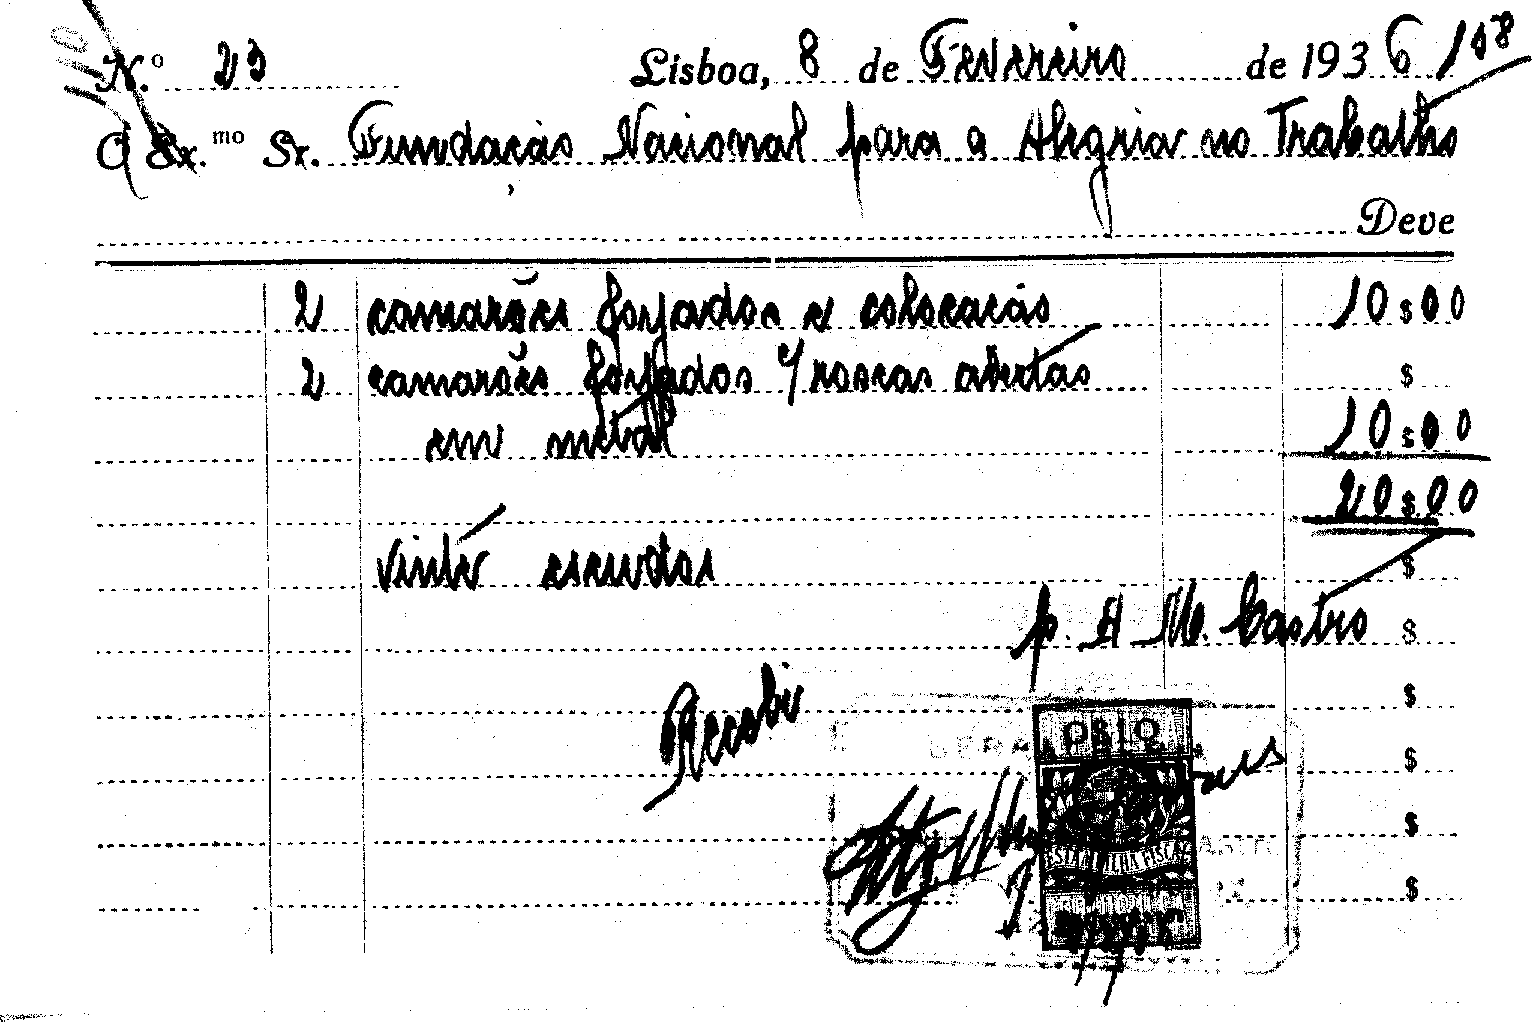 N.º 23 Lisboa, 8 de Fevereiro de 1936 158
O Ex.mo Sr. Fundação Nacional para a Alegria no Trabalho
Deve
2 camarões forjados e colocação 10$00
2 camarões forjados c/ roscas abertas $
em metal 10$00
20$00
vinte escudos $
p. A M. Castro $
Recebi $
OSIO
$
ESTAMPILHA FISCAL
$
$